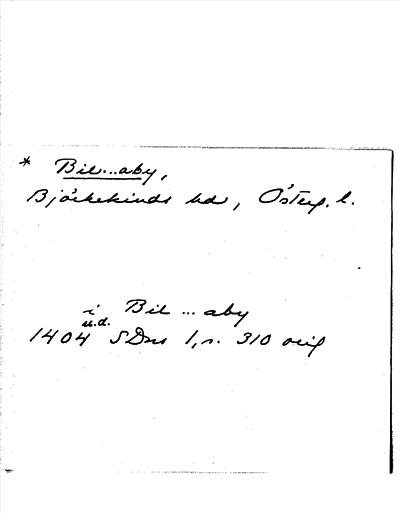 * Bil...aby,
Björkekinds hd, Österg. l.
i Bil ... aby
u.d.
1404 SDns 1, s. 310 orig